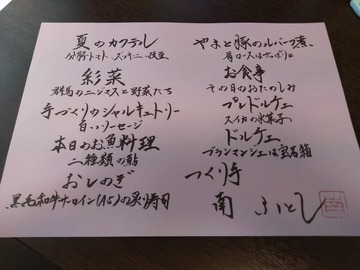 夏のカクテル
彩菜
群馬のニジマスと野菜たち
手づくりのシャルキュトリー
白いソーセージ
本日のお魚料理
二種類の鮎
おしのぎ
黒毛和牛サーロイン(A5)の炙り寿司
やまと豚のルバーブ漬、
肩ロースはさっぱりと
お食事
その日のおたのしみ
プレドルチェ
スイカの氷菓子、
ドルチェ
ブランマンジェは宝石箱
つくり手
南